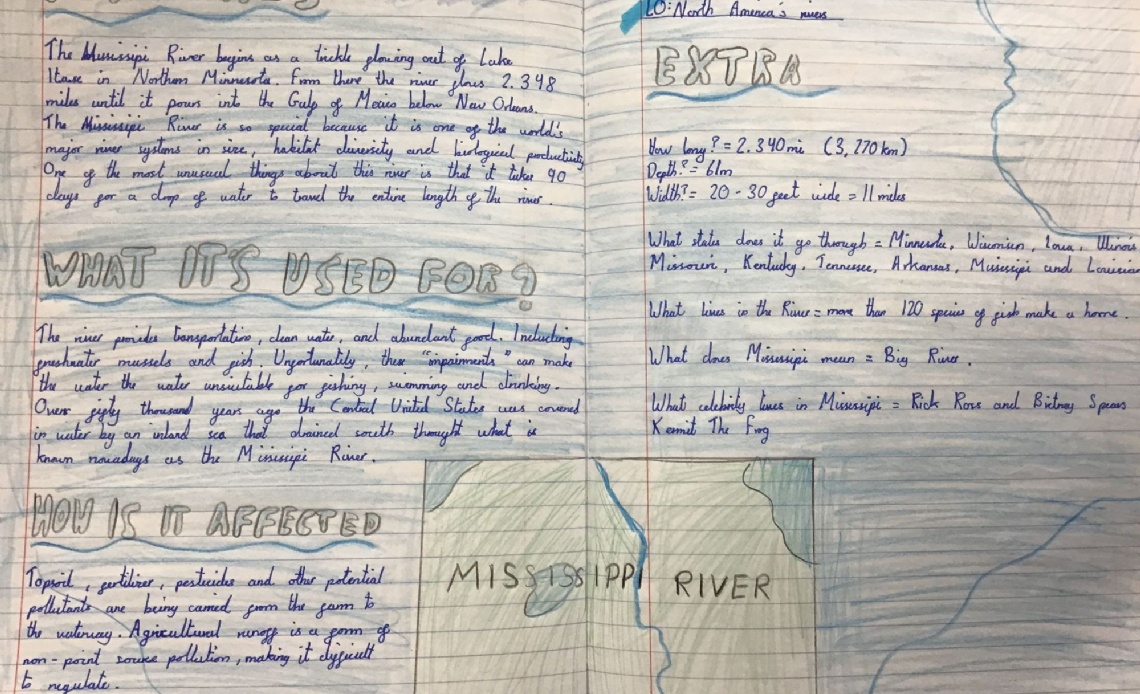 The Mississipi River begins as a trickle flowing out of Lake
Itasc in Northern Minnesota. From there the river flows 2.348
miles until it pours into the Gulf of Mexico below New Orleans.
The Mississipi River is so special because it is one of the world's
major river systems in size, habitat diversity and biological productivity
One of the most unusual things about this river is that it takes 90
days for a drop of water to travel the entire length of the river.
WHAT IT'S USED FOR?
The river provides transportation, clean water, and abundant food. Including
freshwater mussels and fish. Unfortunately, these "impairments" can make
the water the water unsuitable for fishing, swimming and drinking.
Over fifty thousand years ago the Central United States was covered
in water by an inland sea that drained south throught what is
known nowadays as the Missisipi River.
HOW IS IT AFFECTED
Topsoil, fertilizer, pesticides and other potential
pollutants are being carried from the farm to
the waterway. Agricultural runoff is a form of
non-point source pollution, making it difficult
to regulate.
LO: North America's rivers
EXTRA
How long? = 2.340mi (3,770km)
Depth? = 61m
Width? = 20 - 30 feet wide = 11 miles
What states does it go through = Minnesota, Wisconsin, Iowa, Illinois
Missouri, Kentucky, Tennessee, Arkansas, Missisipi and Louisian
What lives in the River = more than 120 species of fish make a home.
What does Missisipi mean = Big River.
What celebrity lives in Missisipi = Rick Ross and Britney Spears
Kermit The Frog
MISSISSIPPI RIVER